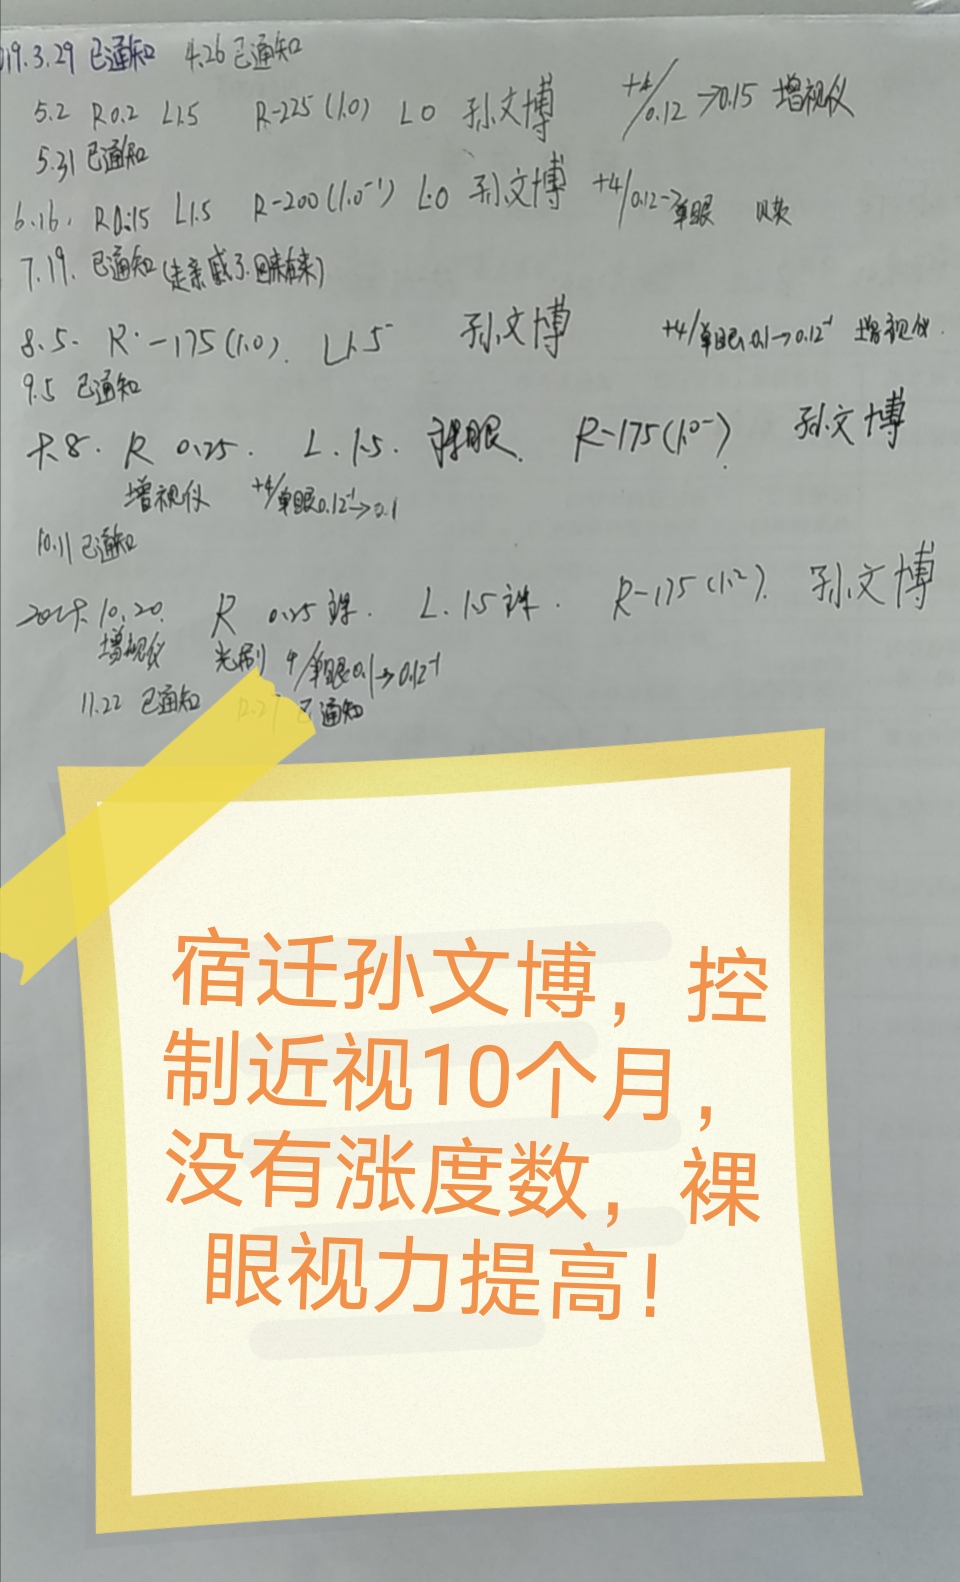 019.3.29 已通知 4.26 已通知
5.2 R0.2 L1.5 R-225(1.0) L0 孙文博 +4/0.12→0.15 增视仪
5.31 已通知
6.16. R0.15 L1.5 R-200(1.0⁻¹) L:0 孙文博 +4/0.12→单眼
7.19. 已通知(走亲戚了.回来再来)
8.5. R -175(1.0). L1.5 孙文博 +4/单眼0.1→0.12⁻¹ 增视仪.
9.5 已通知
R 0.25. L. 1.5. 裸眼. R-175(1.0⁻). 孙文博
增视仪 +4/单眼0.12⁻¹→0.1
10.11 已通知
10.20. R 0.25 L. 1.5 R-175(1.2). 孙文博
增视仪 4/单眼0.1→0.12⁻¹
11.22 已通知 12.27 已通知
宿迁孙文博，控
制近视10个月，
没有涨度数，裸
眼视力提高！